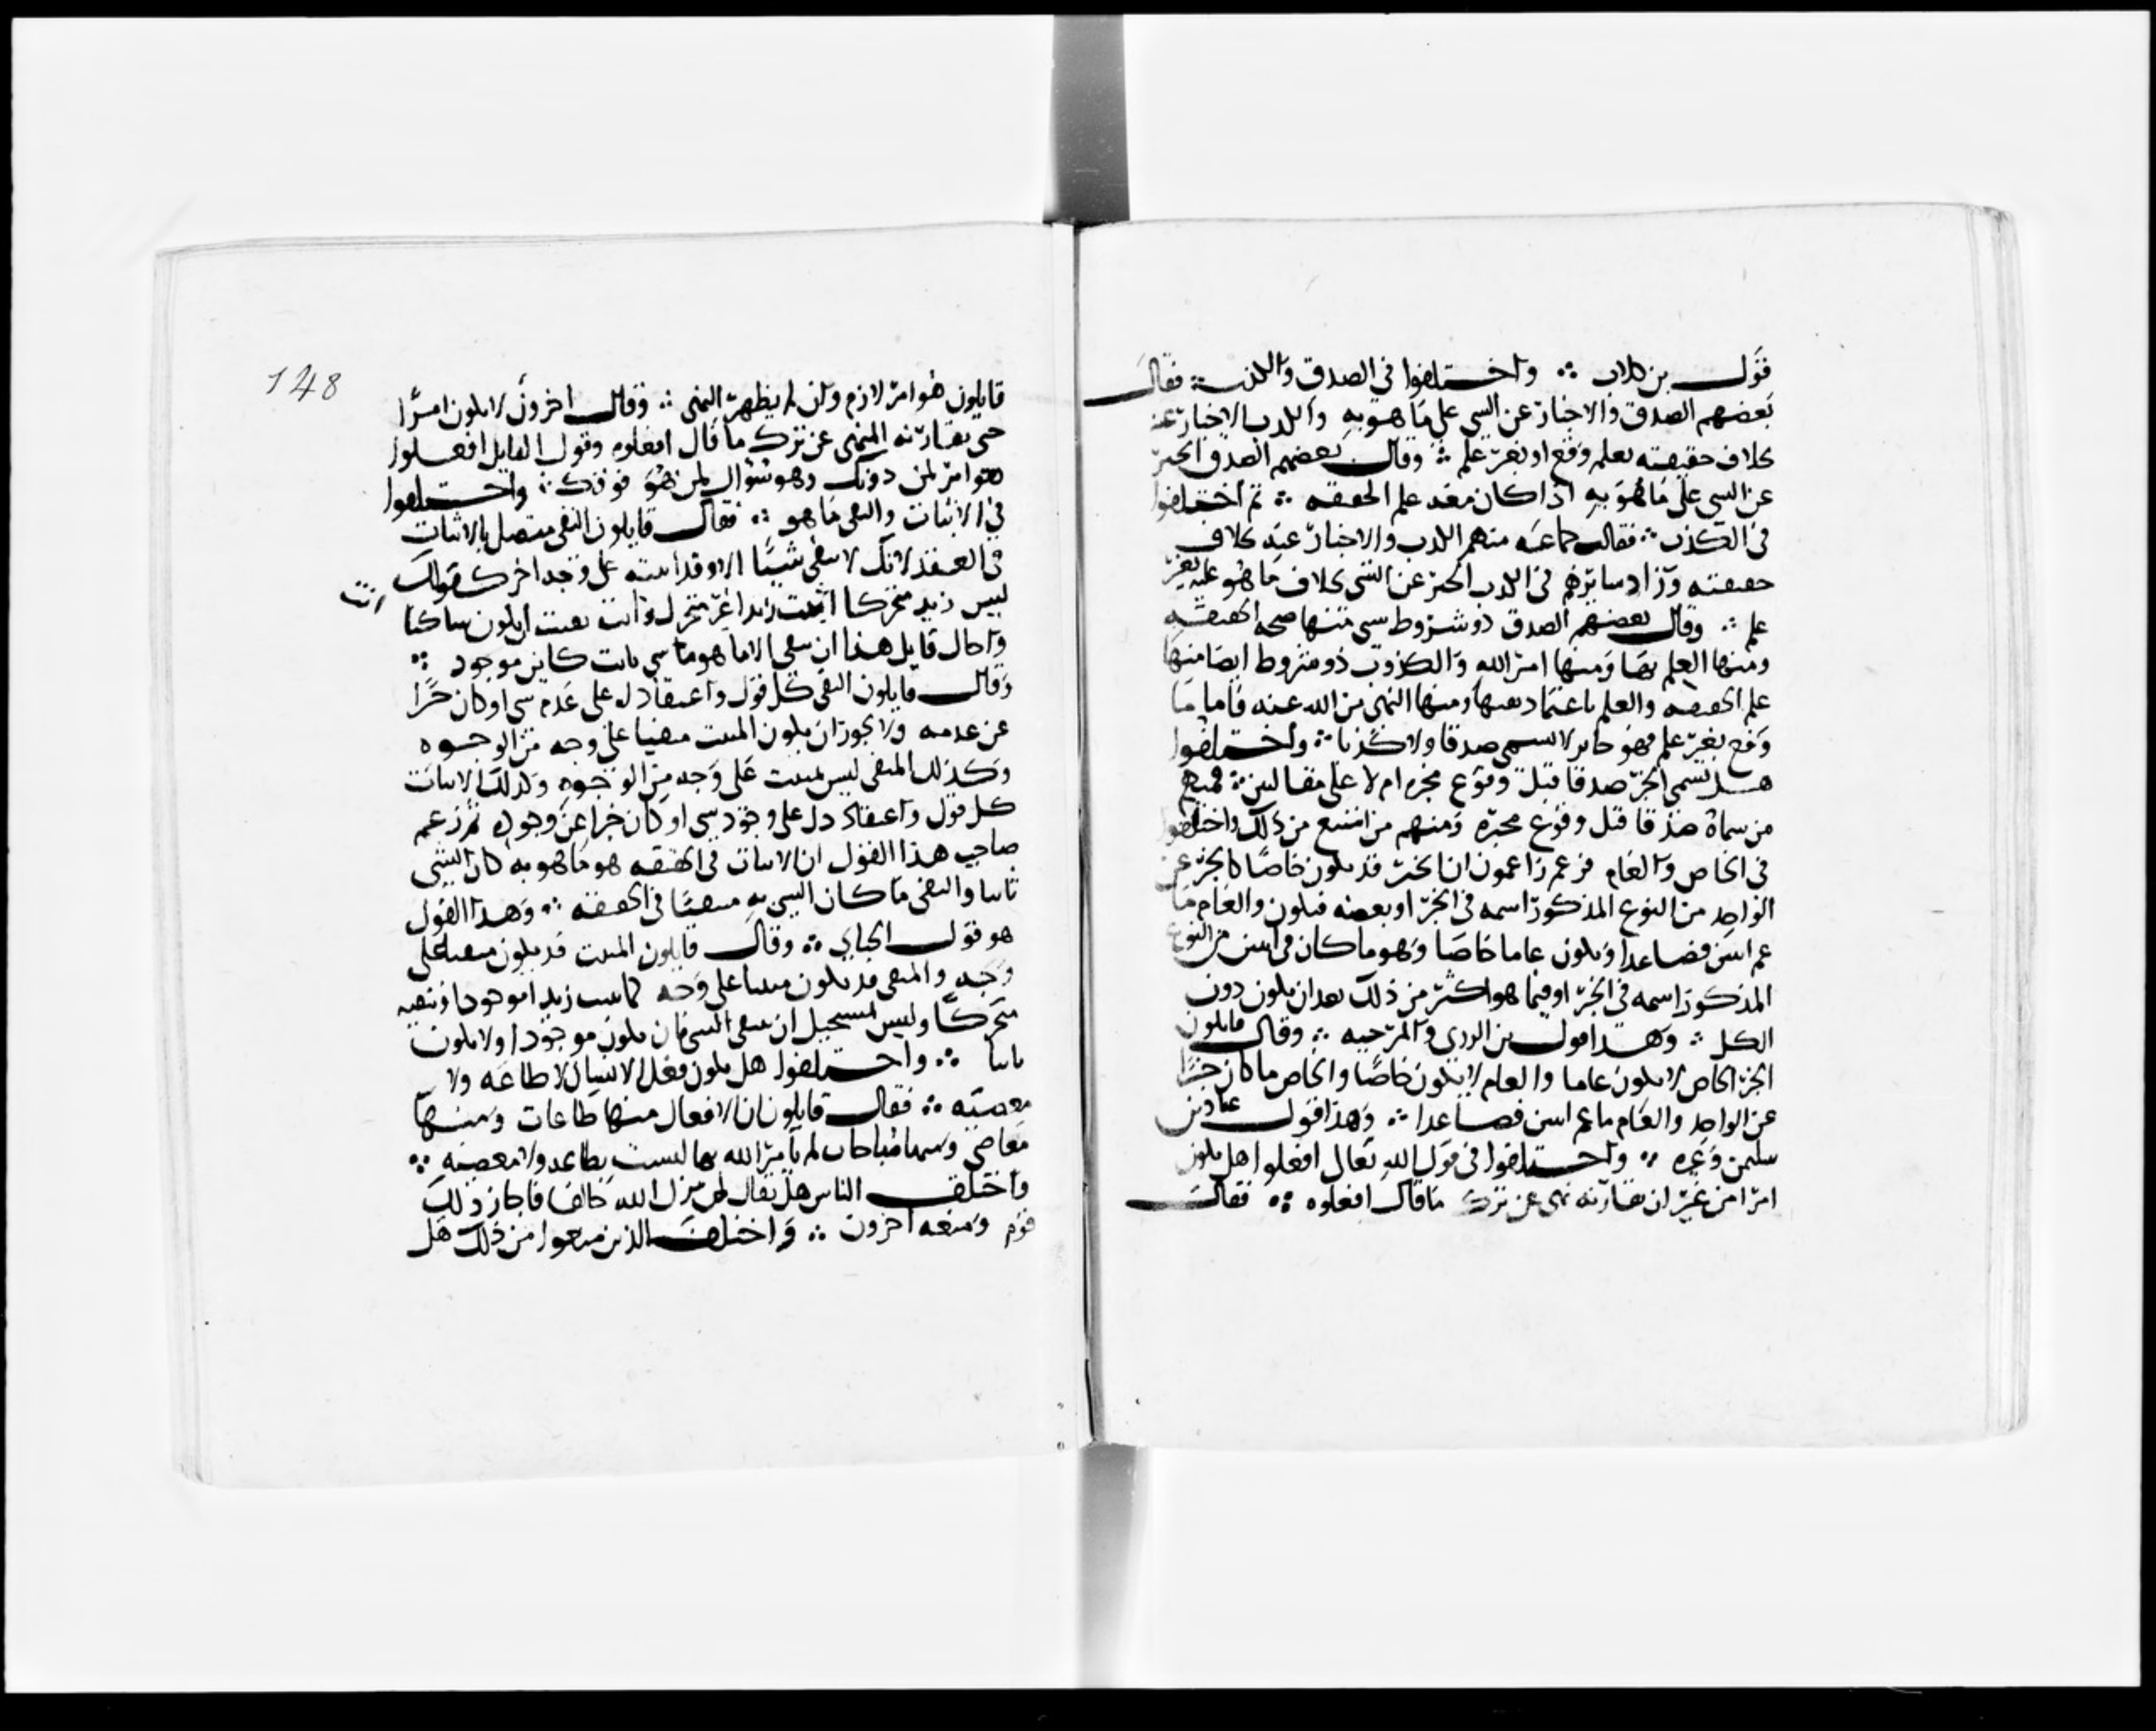 قول بن كلاب ∴ واختلفوا في الصدق والكذب ∴ فقال
بعضهم الصدق والاخبار عن الشي على ما هو به والكذب الاخبار عنه
بخلاف حقيقته بعلم وقع او بغير علم ∴ وقال بعضهم الصدق الخبر
عن الشي على ما هو به اذا كان معه علم الحقيقه ∴ ثم اختلفوا
في الكذب ∴ فقالت جماعه منهم الكذب والاخبار عنه بخلاف
حقيقته وزاد سايرهم في الكذب الخبر عن الشي بخلاف ما هو عليه بغير
علم ∴ وقال بعضهم الصدق ذو شروط شي منها صحه الحقيقه
ومنها العلم بها ومنها امر الله به والكذب ذو شروط ايضا منها
علم الحقيقه والعلم باعتماد نفيها ومنها النهي من الله عنه فاما ما
وقع بغير علم فهو خابر لا يسمى صدقا ولا كذبا ∴ واختلفوا
هل يسمى الخبر صدقا قبل وقوع مخبره ام لا على مقالتين ∴ فمنهم
من سماه صدقا قبل وقوع مخبره ومنهم من امتنع من ذلك واختلفوا
في الخاص والعام فزعم زاعمون ان الخبر قد يكون خاصا كالخبر عن
الواحد من النوع المذكور اسمه في الخبر او بعضه فيكون والعام ما
عم اثنين فصاعدا ويكون عاما خاصا وهو ما كان في اثنين من النوع
المذكور اسمه في الخبر او فيما هو اكثر من ذلك بعد ان يكون دون
الكل ∴ وهذا قول بن الروندي والمرجيه ∴ وقال قايلون
الخبر الخاص لا يكون عاما والعام لا يكون خاصا والخاص ما كان خبرا
عن الواحد والعام ما عم اثنين فصاعدا ∴ وهذا قول عباد بن
سليمن وغيره ∴ واختلفوا في قول الله تعالى افعلوا هل يكون
امرا من غير ان يقارنه نهي عن ترك ما قال افعلوه ∴ فقال
148
قايلون هو امر لازم وان لم يظهر النهي ∴ وقال اخرون لا يكون امرا
حتى يقارنه النهي عن ترك ما قال افعلوه وقول القايل افعلوا
هو امر لمن دونك وهو سؤال لمن هو فوقك ∴ واختلفوا
في الاثبات والنفي ما هو ∴ فقال قايلون النفي متصل بالاثبات
في العقد لانك لا تنفي شيئا الا وقد اثبته على وجه اخر كقولك
ليس زيد متحركا اثبت زيدا غير متحرك وانت نفيت ان يكون ساكنا
انت
واحال قايل هذا ان ينفي الا ما هو ما شي ثابت كاين موجود ∴
وقال قايلون النفي كل قول واعتقاد دل على عدم شي او كان خبرا
عن عدمه ولا يجوز ان يكون المثبت منفيا على وجه من الوجوه
وكذلك المنفي ليس بمثبت على وجه من الوجوه وكذلك الاثبات
كل قول واعتقاد دل على وجود شي او كان خبرا عن وجوده ثم زعم
صاحب هذا القول ان الاثبات في الحقيقه هو ما هو به كان الشي
ثابتا والنفي ما كان الشي به منفيا في الحقيقه ∴ وهذا القول
هو قول الجباي ∴ وقال قايلون المثبت قد يكون منفيا على
وجه والمنفي قد يكون مثبتا على وجه كما تثبت زيدا موجودا وتنفيه
متحركا وليس يستحيل ان ينفى الشي فان يكون موجودا ولا يكون
ثابتا ∴ واختلفوا هل يكون فعل الانسان لا طاعه ولا
معصيه ∴ فقال قايلون ان الافعال منها طاعات ومنها
معاصي ومنها مباحات لم يامر الله بها ليست بطاعه ولا معصيه ∴
واختلف الناس هل يقال لم يزل الله خالقا فاجاز ذلك
قوم ومنعه اخرون ∴ واختلف الذين منعوا من ذلك هل